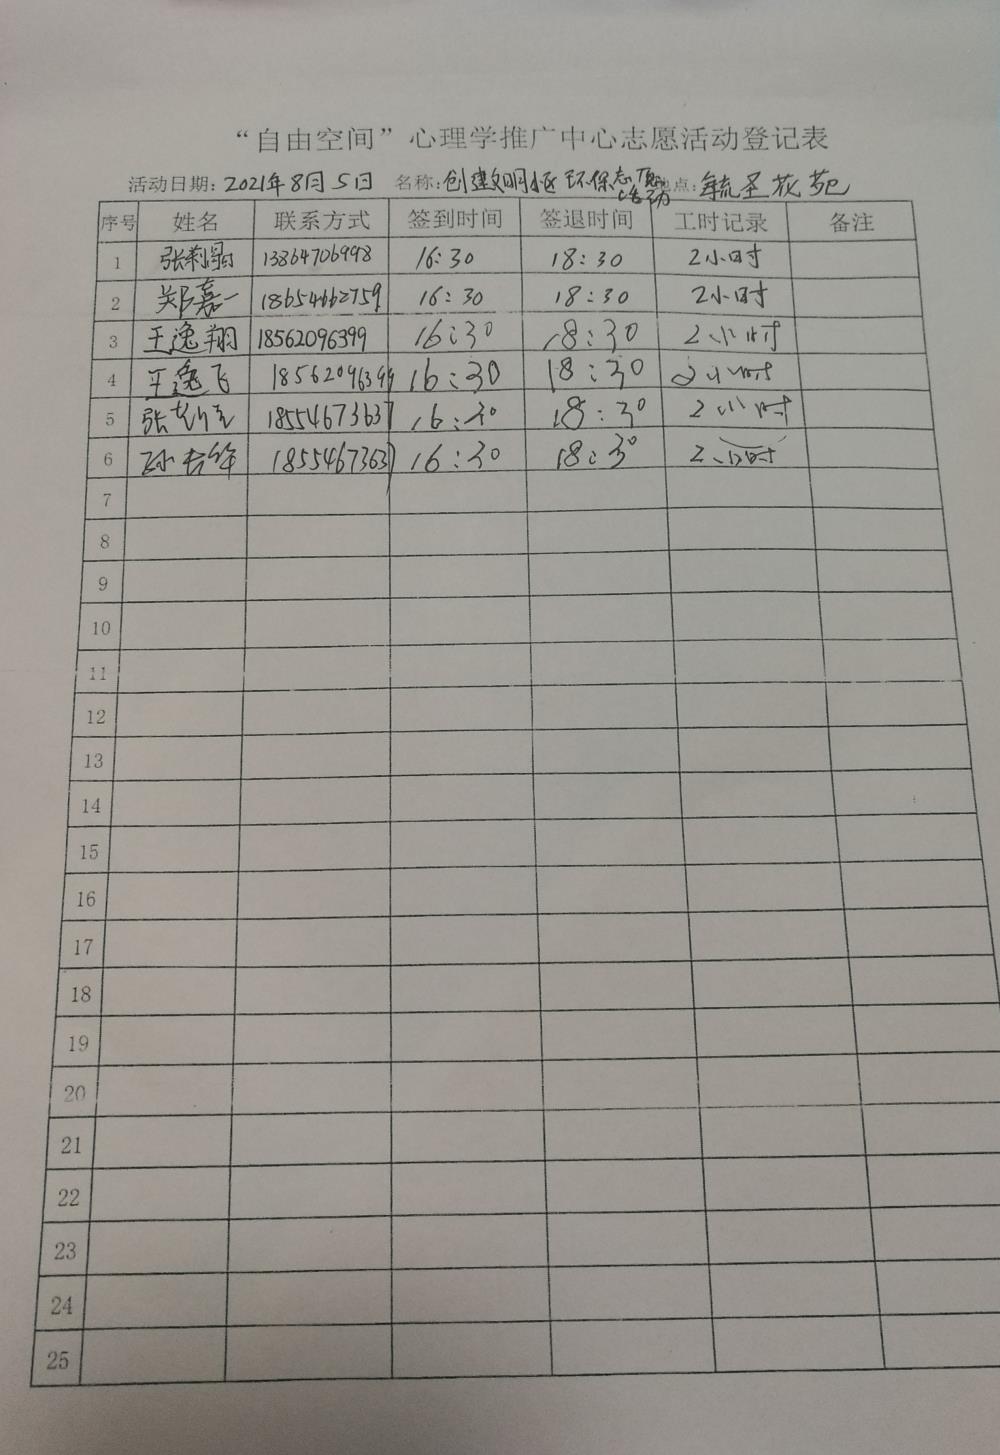 “自由空间”心理学推广中心志愿活动登记表
活动日期：2021年8月5日 名称：创建文明小区环保志愿活动 地点：毓圣花苑
序号 姓名 联系方式 签到时间 签退时间 工时记录 备注
1 张 13864706998 16:30 18:30 2小时
2 郑嘉一 18654662759 16:30 18:30 2小时
3 王逸翔 18562096399 16:30 18:30 2小时
4 王逸飞 18562096399 16:30 18:30 2小时
5 张 18554673637 16:30 18:30 2小时
6 孙 18554673637 16:30 18:30 2小时
7
8
9
10
11
12
13
14
15
16
17
18
19
20
21
22
23
24
25